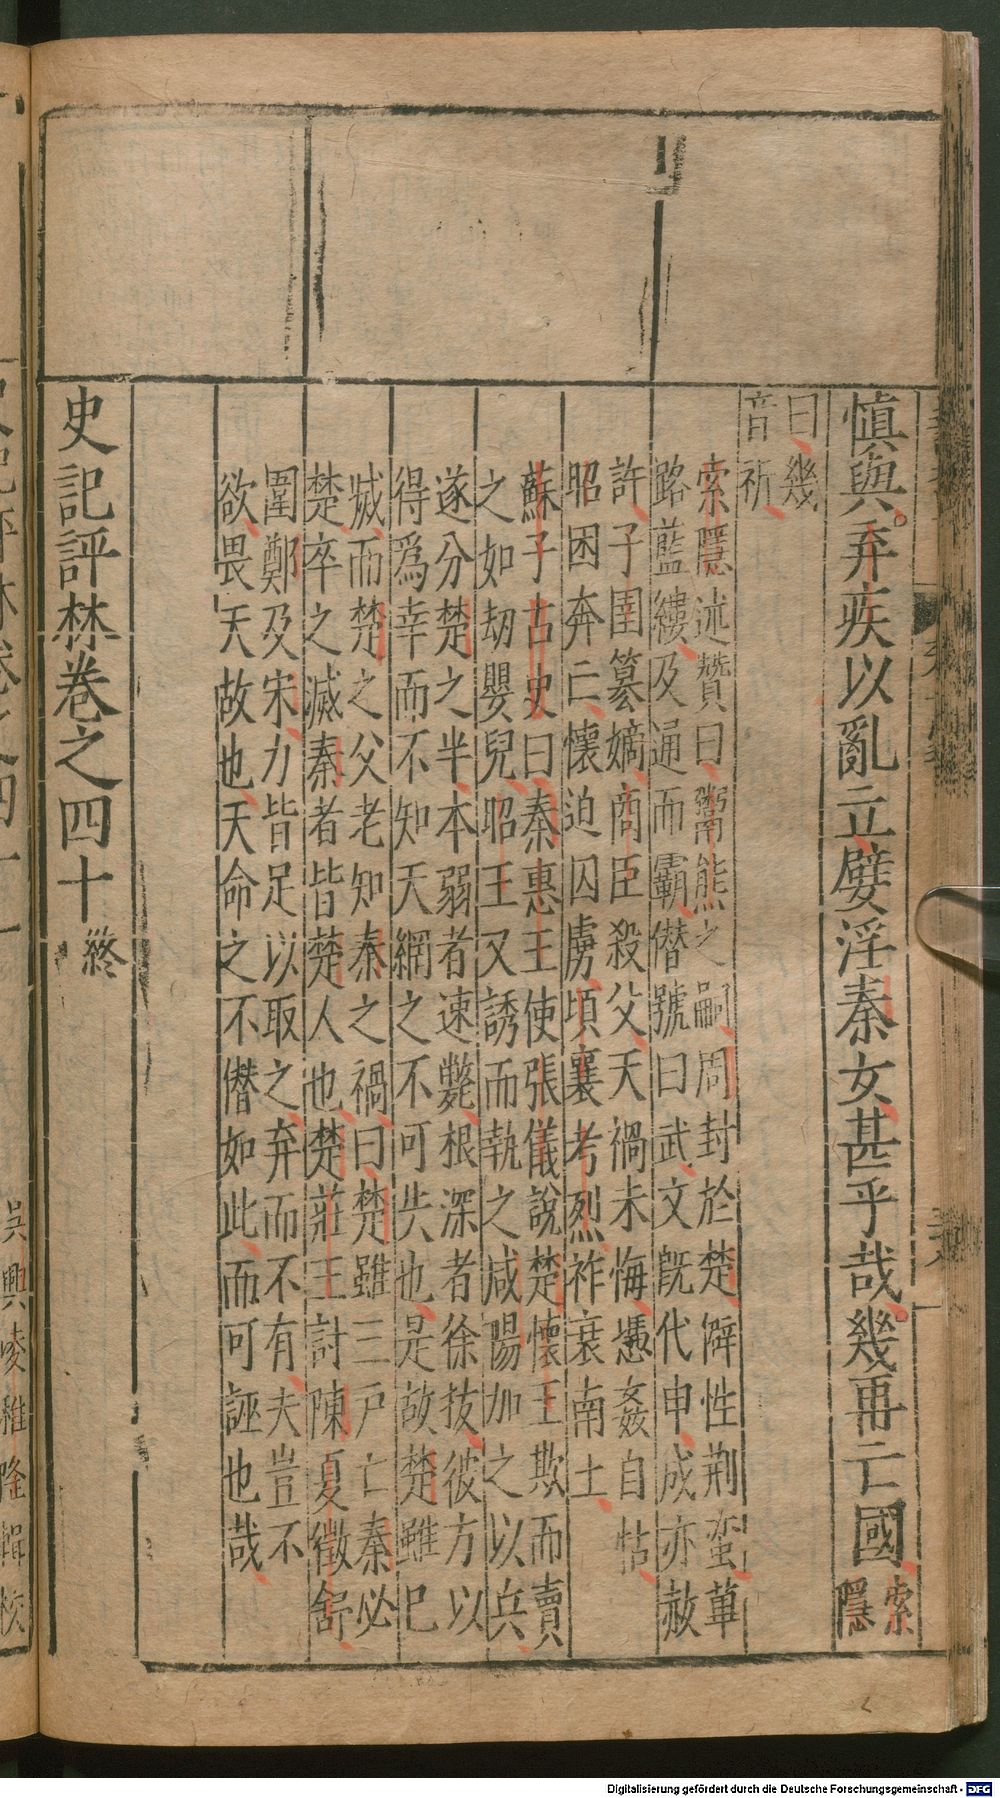 慎與弃疾以亂立嬖淫秦女甚乎哉幾再亡國索隱
曰幾
音祈
索隱述贊曰鬻熊之嗣周封於楚僻性荆蛮蓽
路藍縷及通而霸僣號曰武文旣代申成亦赦
許子圉簒嫡商臣殺父天禍未悔慿姦自怙
昭困奔亡懷迫囚虜頃襄考烈祚衰南土
蘇子古史曰秦惠王使張儀說楚懷王欺而賣
之如刼嬰兒昭王又誘而執之咸陽加之以兵
遂分楚之半本弱者速斃根深者徐抜彼方以
得爲幸而不知天網之不可失也是故楚雖已
烕而楚之父老知秦之禍曰楚雖三戸亡秦必
楚卒之滅秦者皆楚人也楚莊王討陳夏徵舒
圍鄭及宋力皆足以取之弃而不有夫豈不
欲畏天故也天命之不僣如此而可誣也哉
史記評林卷之四十終
吳興凌稚隆輯校
Digitalisierung gefördert durch die Deutsche Forschungsgemeinschaft - DFG